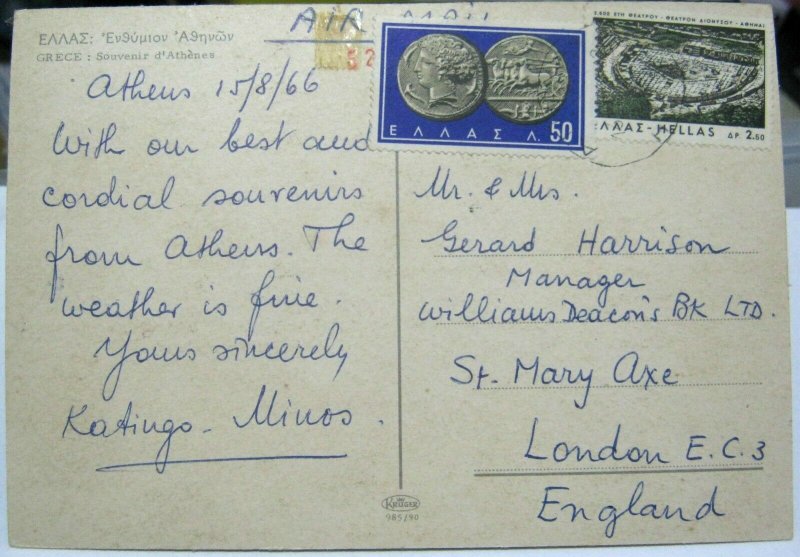 ΕΛΛΑΣ: Ἐνθύμιον Ἀθηνῶν
GRECE : Souvenir d'Athènes
AIR MAIL
52
ΕΛΛΑΣ Λ. 50
2.500 ΕΤΗ ΘΕΑΤΡΟΥ - ΘΕΑΤΡΟΝ ΔΙΟΝΥΣΟΥ - ΑΘΗΝΑΙ
ΕΛΛΑΣ-HELLAS ΔΡ 2.50
Athens 15/8/66
With our best and
cordial souvenirs
from Athens. The
weather is fine.
Yours sincerely
Katingo - Minos.
Mr. & Mrs.
Gerard Harrison
Manager
Williams Deacon's BK LTD.
St. Mary Axe
London E.C.3
England
KRÜGER
985/90